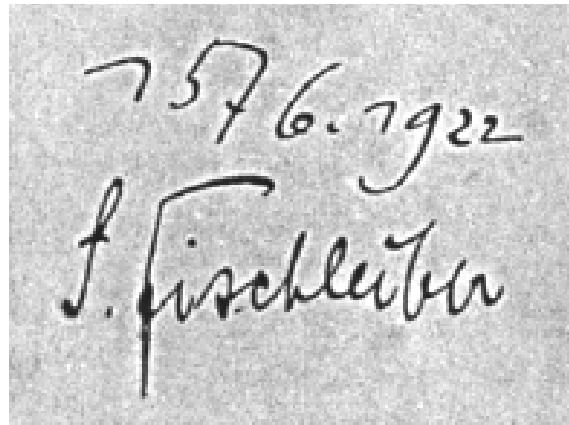 15/6. 1922
Fischleiber